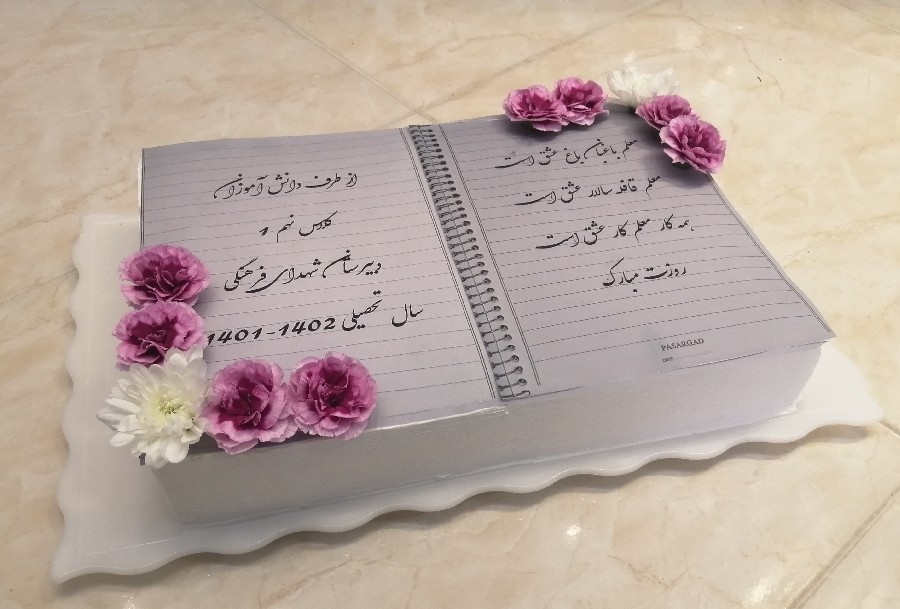 معلم باغبان باغ عشق است
معلم قافله سالار عشق است
همه کار معلم کار عشق است
روزت مبارک
PASARGAD
از طرف دانش آموزان
کلاس نهم 1
دبیرستان شهدای فرهنگی
سال تحصیلی 1402-1401